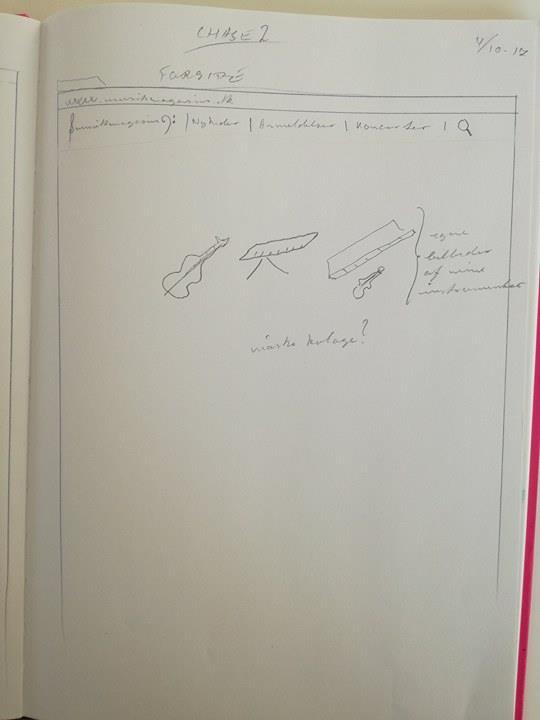 CHASE 2
4/10-17
FORSIDE
www.musikmagasius.dk
musikmagasius | Nyheder | Anmeldelser | Koncerter |
egne
billeder
af mine
instrumenter
måske kolage?